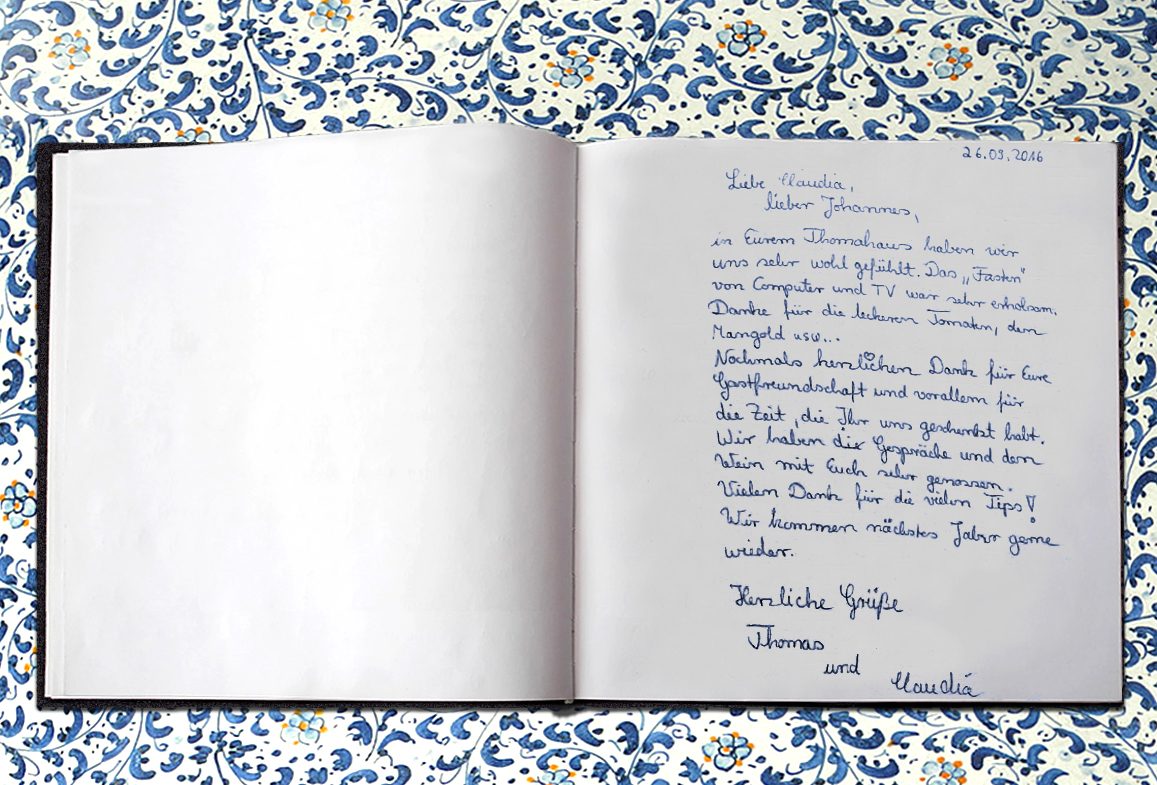 26.09.2016
Liebe Claudia,
lieber Johannes,
in Eurem Thomahaus haben wir
uns sehr wohl gefühlt. Das „Fasten"
von Computer und TV war sehr erholsam.
Danke für die leckeren Tomaten, den
Mangold usw...
Nochmals herzlichen Dank für Eure
Gastfreundschaft und vorallem für
die Zeit, die Ihr uns geschenkt habt.
Wir haben die Gespräche und den
Wein mit Euch sehr genossen.
Vielen Dank für die vielen Tips!
Wir kommen nächstes Jahr gerne
wieder.
Herzliche Grüße
Thomas
und
Claudia